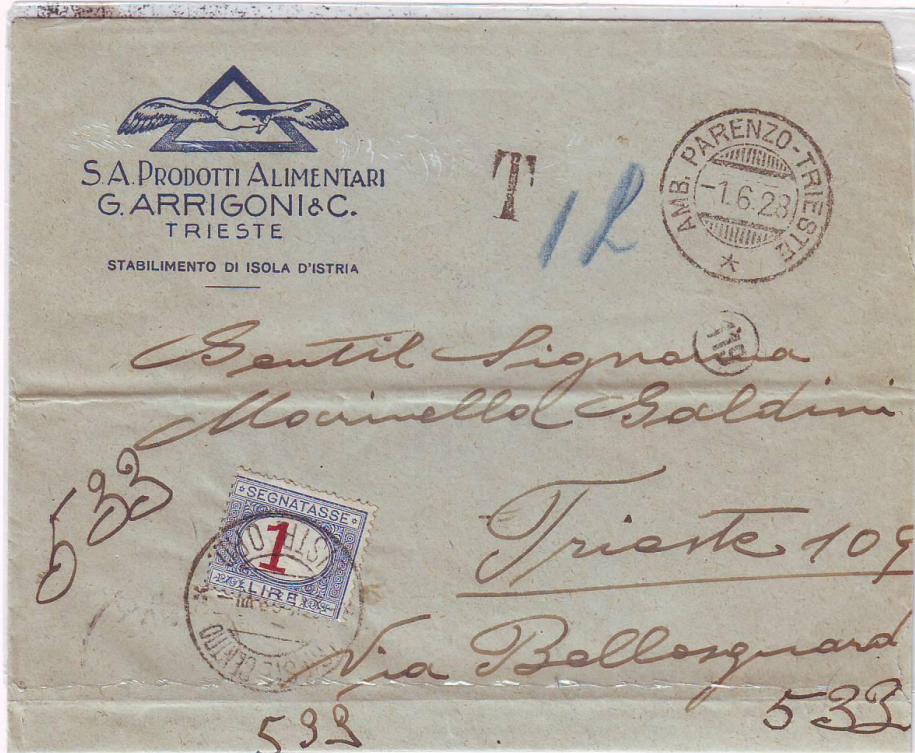 S.A. PRODOTTI ALIMENTARI
G. ARRIGONI & C.
TRIESTE
STABILIMENTO DI ISOLA D'ISTRIA
T
1 L
AMB. PARENZO-TRIESTE
-1.6.28
119
Gentil Signorina
Marinella Galdini
Trieste 109
Via Bellosguard
533
SEGNATASSE
1
LIRE
533
533